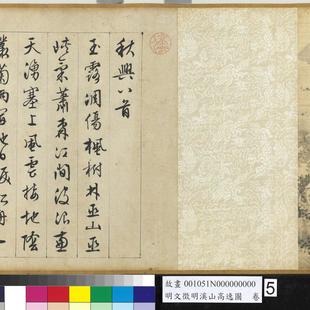 秋興八首
玉露凋傷楓樹林巫山巫
峽氣蕭森江間波浪兼
天湧塞上風雲接地陰
叢菊兩開他日淚孤舟一
故畫 001051N000000000
明文徵明溪山高逸圖 卷
5